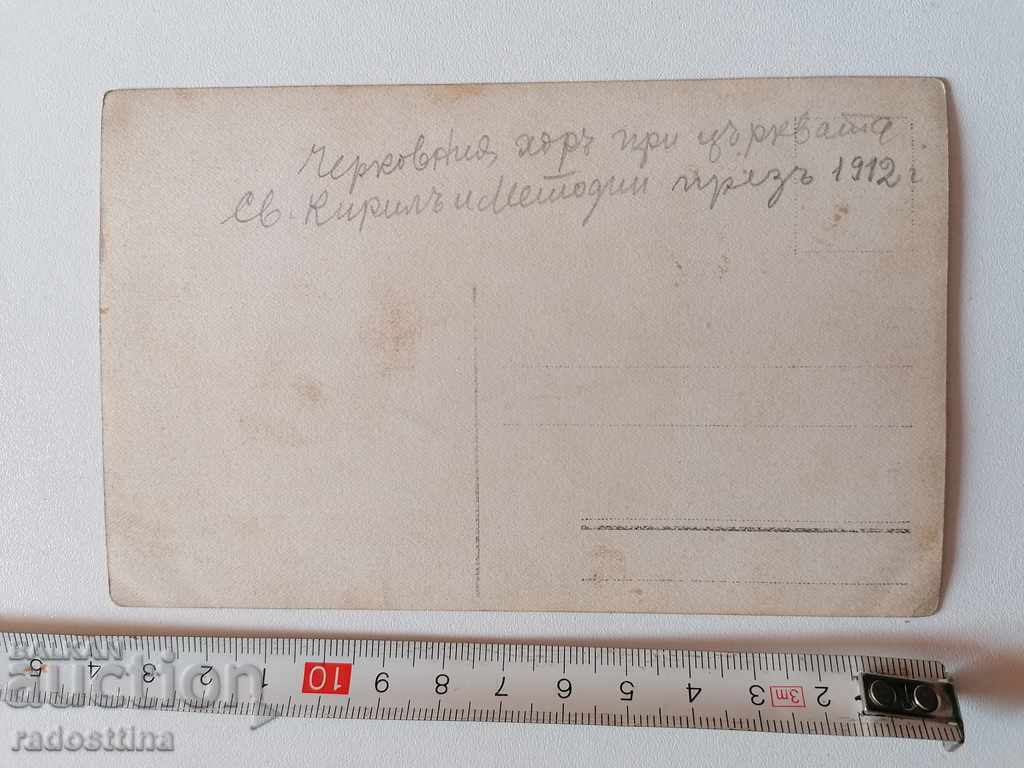 Черковния хоръ при църквата
Св. Кирилъ и Методии презъ 1912 г
5 4 3 2 1 10 9 8 7 6 5 4 3 3m 2
БАЛКАН
auction
radosttina